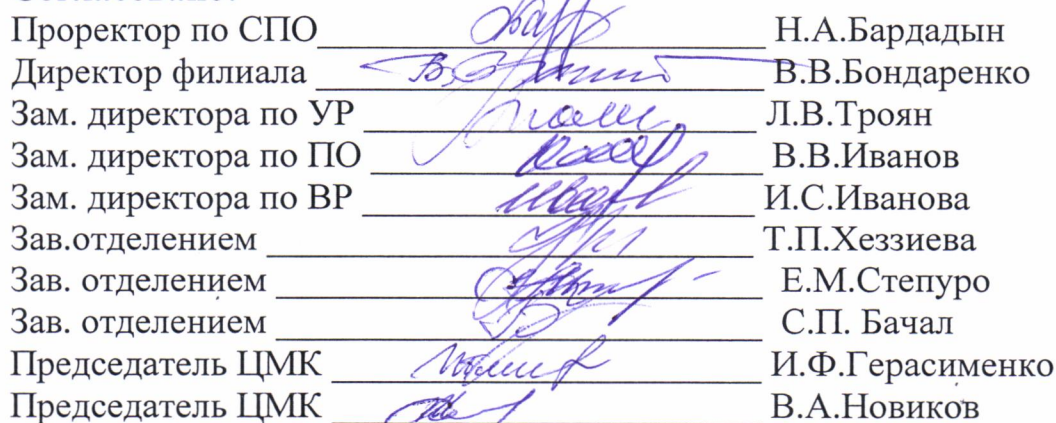 Проректор по СПО Н.А.Бардадын
Директор филиала В.В.Бондаренко
Зам. директора по УР Л.В.Троян
Зам. директора по ПО В.В.Иванов
Зам. директора по ВР И.С.Иванова
Зав.отделением Т.П.Хеззиева
Зав. отделением Е.М.Степуро
Зав. отделением С.П. Бачал
Председатель ЦМК И.Ф.Герасименко
Председатель ЦМК В.А.Новиков